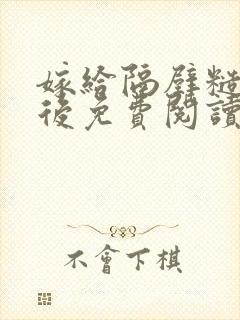 嫁給隔壁糙
後免費閱讀
不會下棋